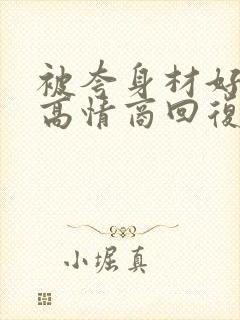 被夸身材好
高情商回復
小堀真